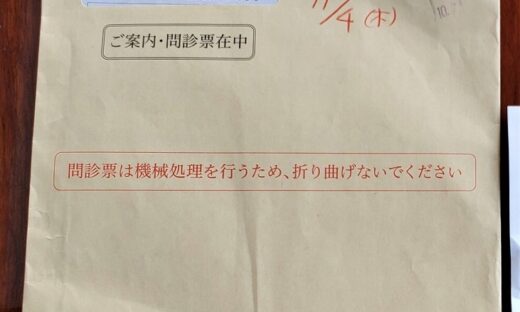 11/4(木)
ご案内・問診票在中
問診票は機械処理を行うため、折り曲げないでください